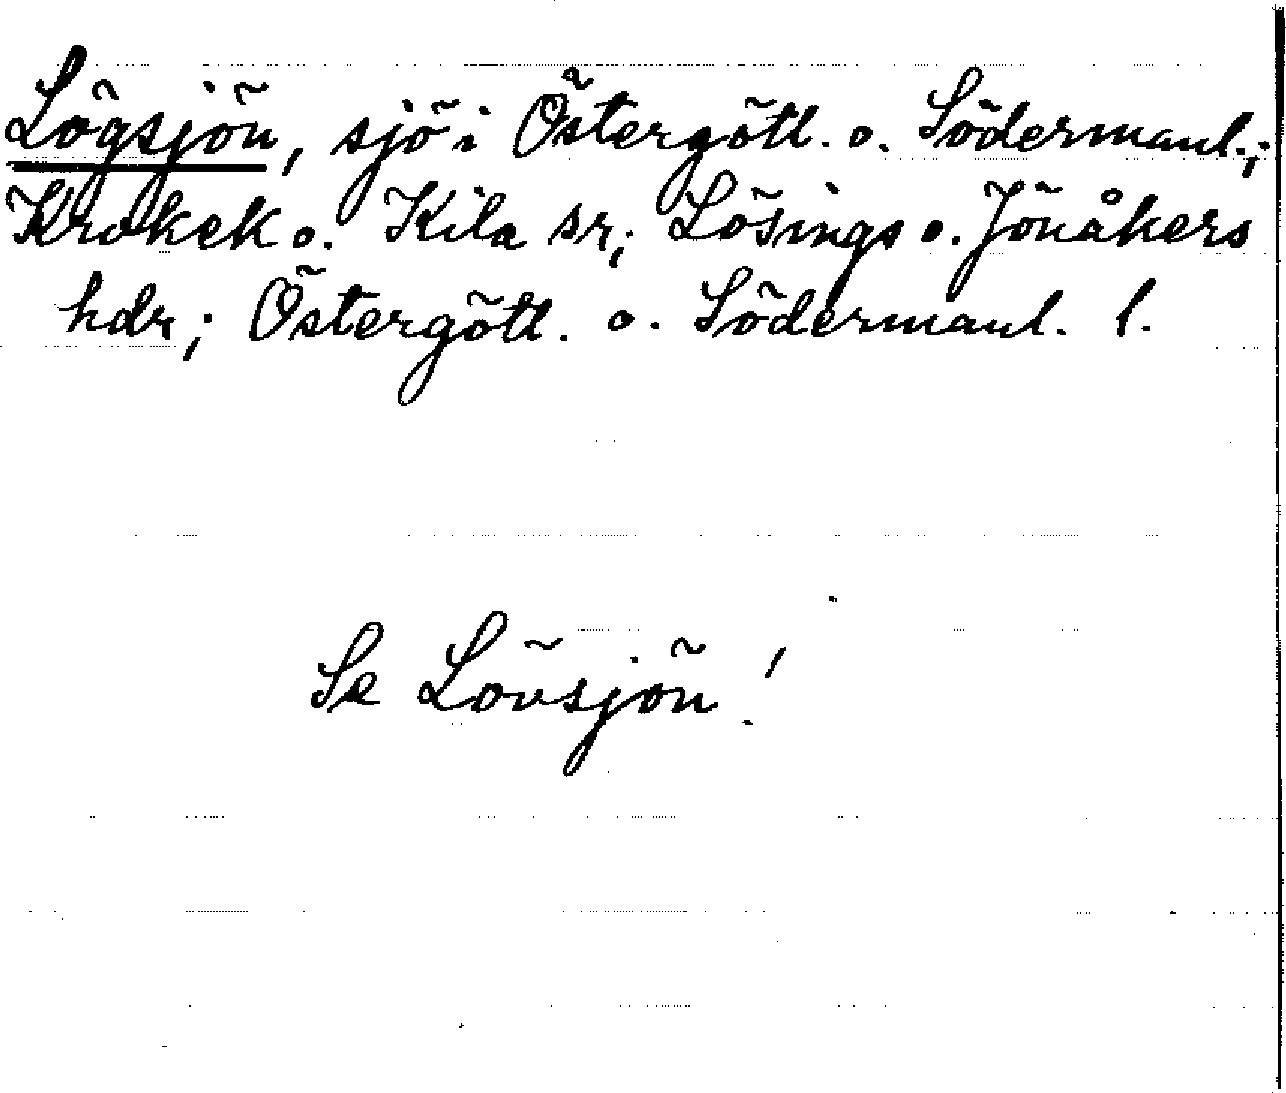 Lögsjön, sjö i Östergötl. o. Södermanl.;
Krokek o. Kila sr; Lösings o. Jönåkers
hdr; Östergötl. o. Södermanl. l.
Se Lövsjön!